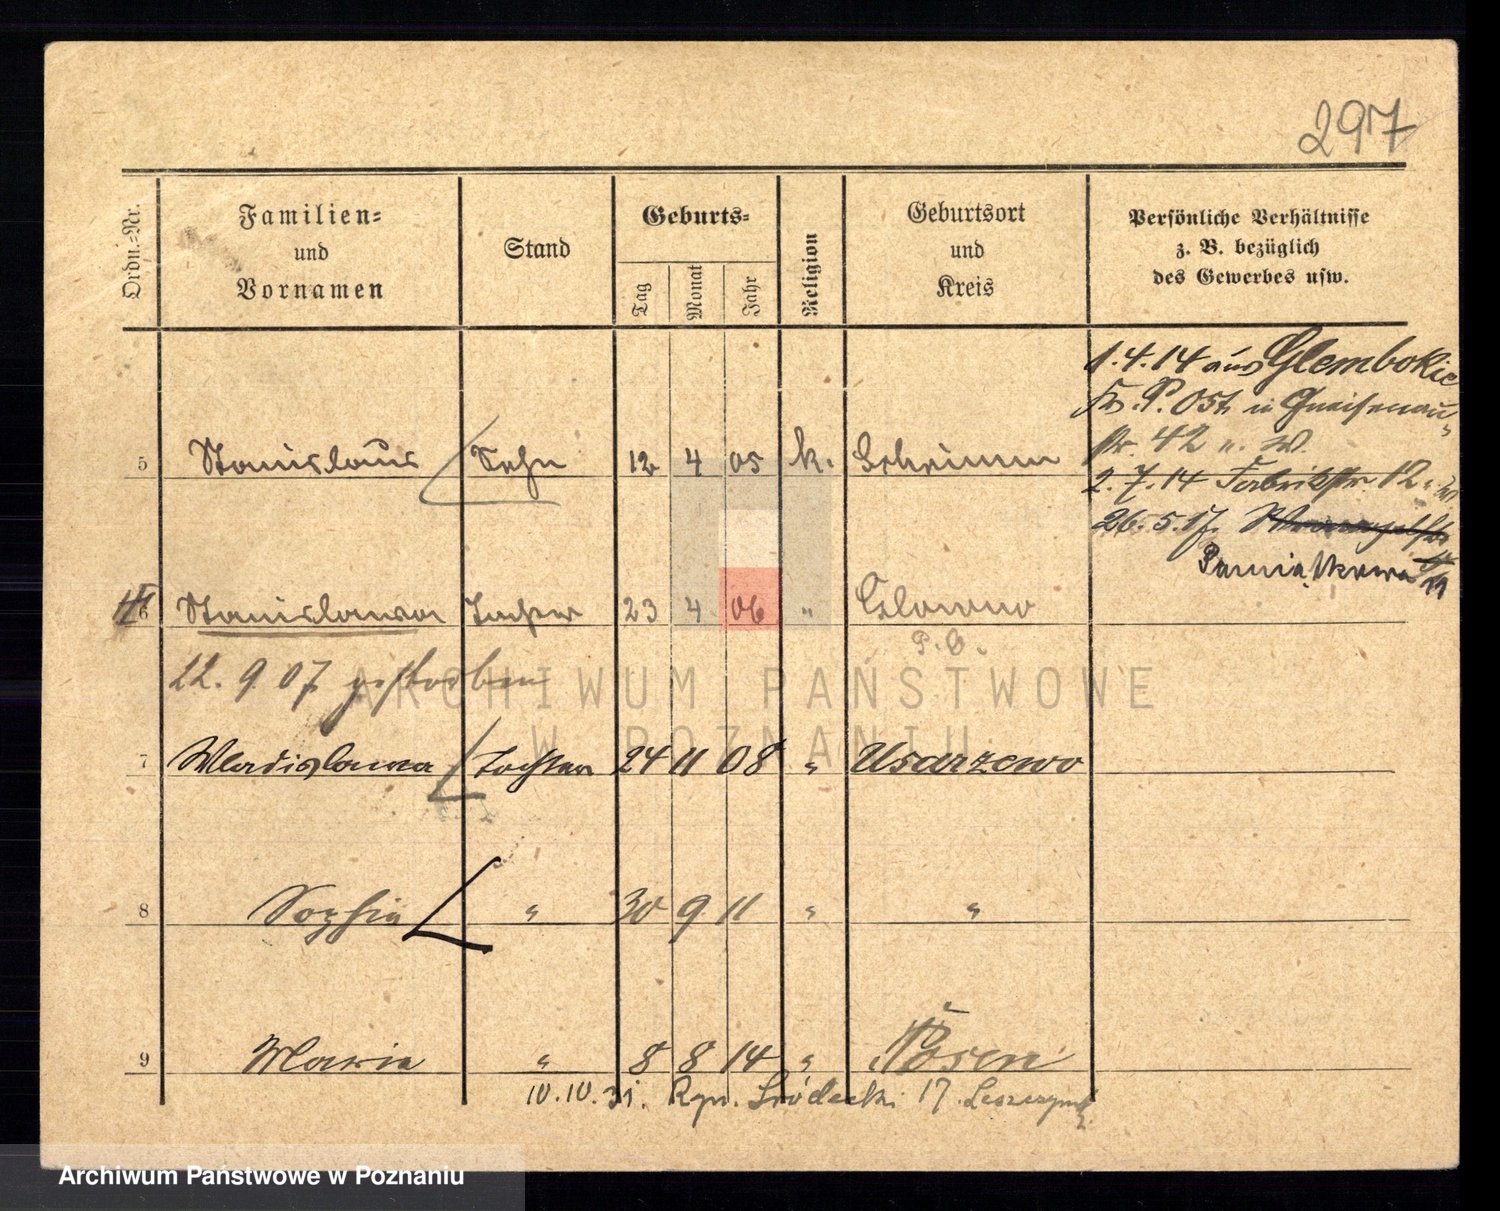 297
Ordn.-Nr.
Familien-
und
Vornamen
Stand
Geburts-
Tag
Monat
Jahr
Religion
Geburtsort
und
Kreis
Persönliche Verhältnisse
z. B. bezüglich
des Gewerbes usw.
1.4.14 aus Glembokie
Kr. P. Ost. in Gneisenau-
str. 42 u. W.
5 Stanislaus Sohn 12 4 05 k. Schrimm
2.7.14 Fabrikstr. 12
26.5.17.
6 Stanislawa Tochter 23 4 06 " Glowno
P. O.
22. 9. 07 gestorben
7 Wladislawa Tochter 24 11 08 " Usarzewo
8 Sophia " 30 9 11 " "
9 Maria " 8 8 14 " Posen
10.10.31. Ryn. Śródecki 17.
ARCHIWUM PAŃSTWOWE
W POZNANIU
Archiwum Państwowe w Poznaniu